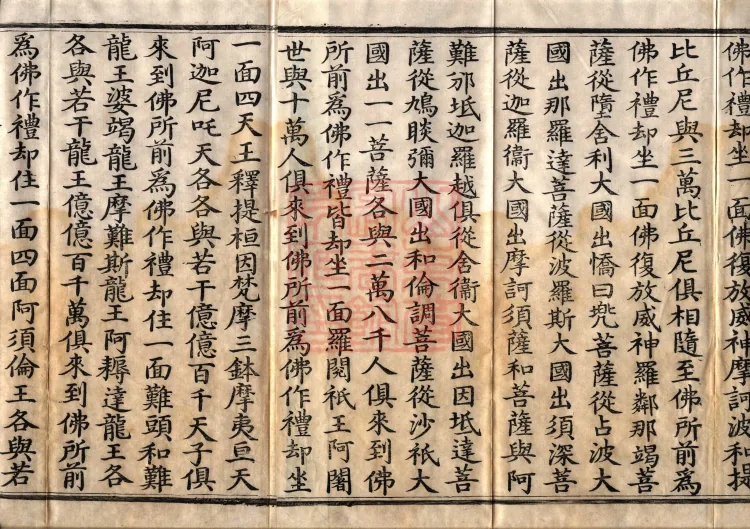 佛作禮却坐一面佛復放威神摩訶波和提
比丘尼與三萬比丘尼俱相隨至佛所前爲
佛作禮却坐一面佛復放威神羅鄰那竭菩
薩從墮舍利大國出憍曰兜菩薩從占波大
國出那羅達菩薩從波羅斯大國出須深菩
薩從迦羅衞大國出摩訶須薩和菩薩與阿
難邠坻迦羅越俱從舍衞大國出因坻達菩
薩從鳩睒彌大國出和倫調菩薩從沙祇大
國出一一菩薩各與二萬八千人俱來到佛
所前爲佛作禮皆却坐一面羅閱祇王阿闍
世與十萬人俱來到佛所前爲佛作禮却坐
一面四天王釋提桓因梵摩三鉢摩夷亘天
阿迦尼吒天各各與若干億億百千天子俱
來到佛所前爲佛作禮却住一面難頭和難
龍王婆竭龍王摩難斯龍王阿耨達龍王各
各與若干龍王億億百千萬俱來到佛所前
爲佛作禮却住一面四面阿須倫王各與若